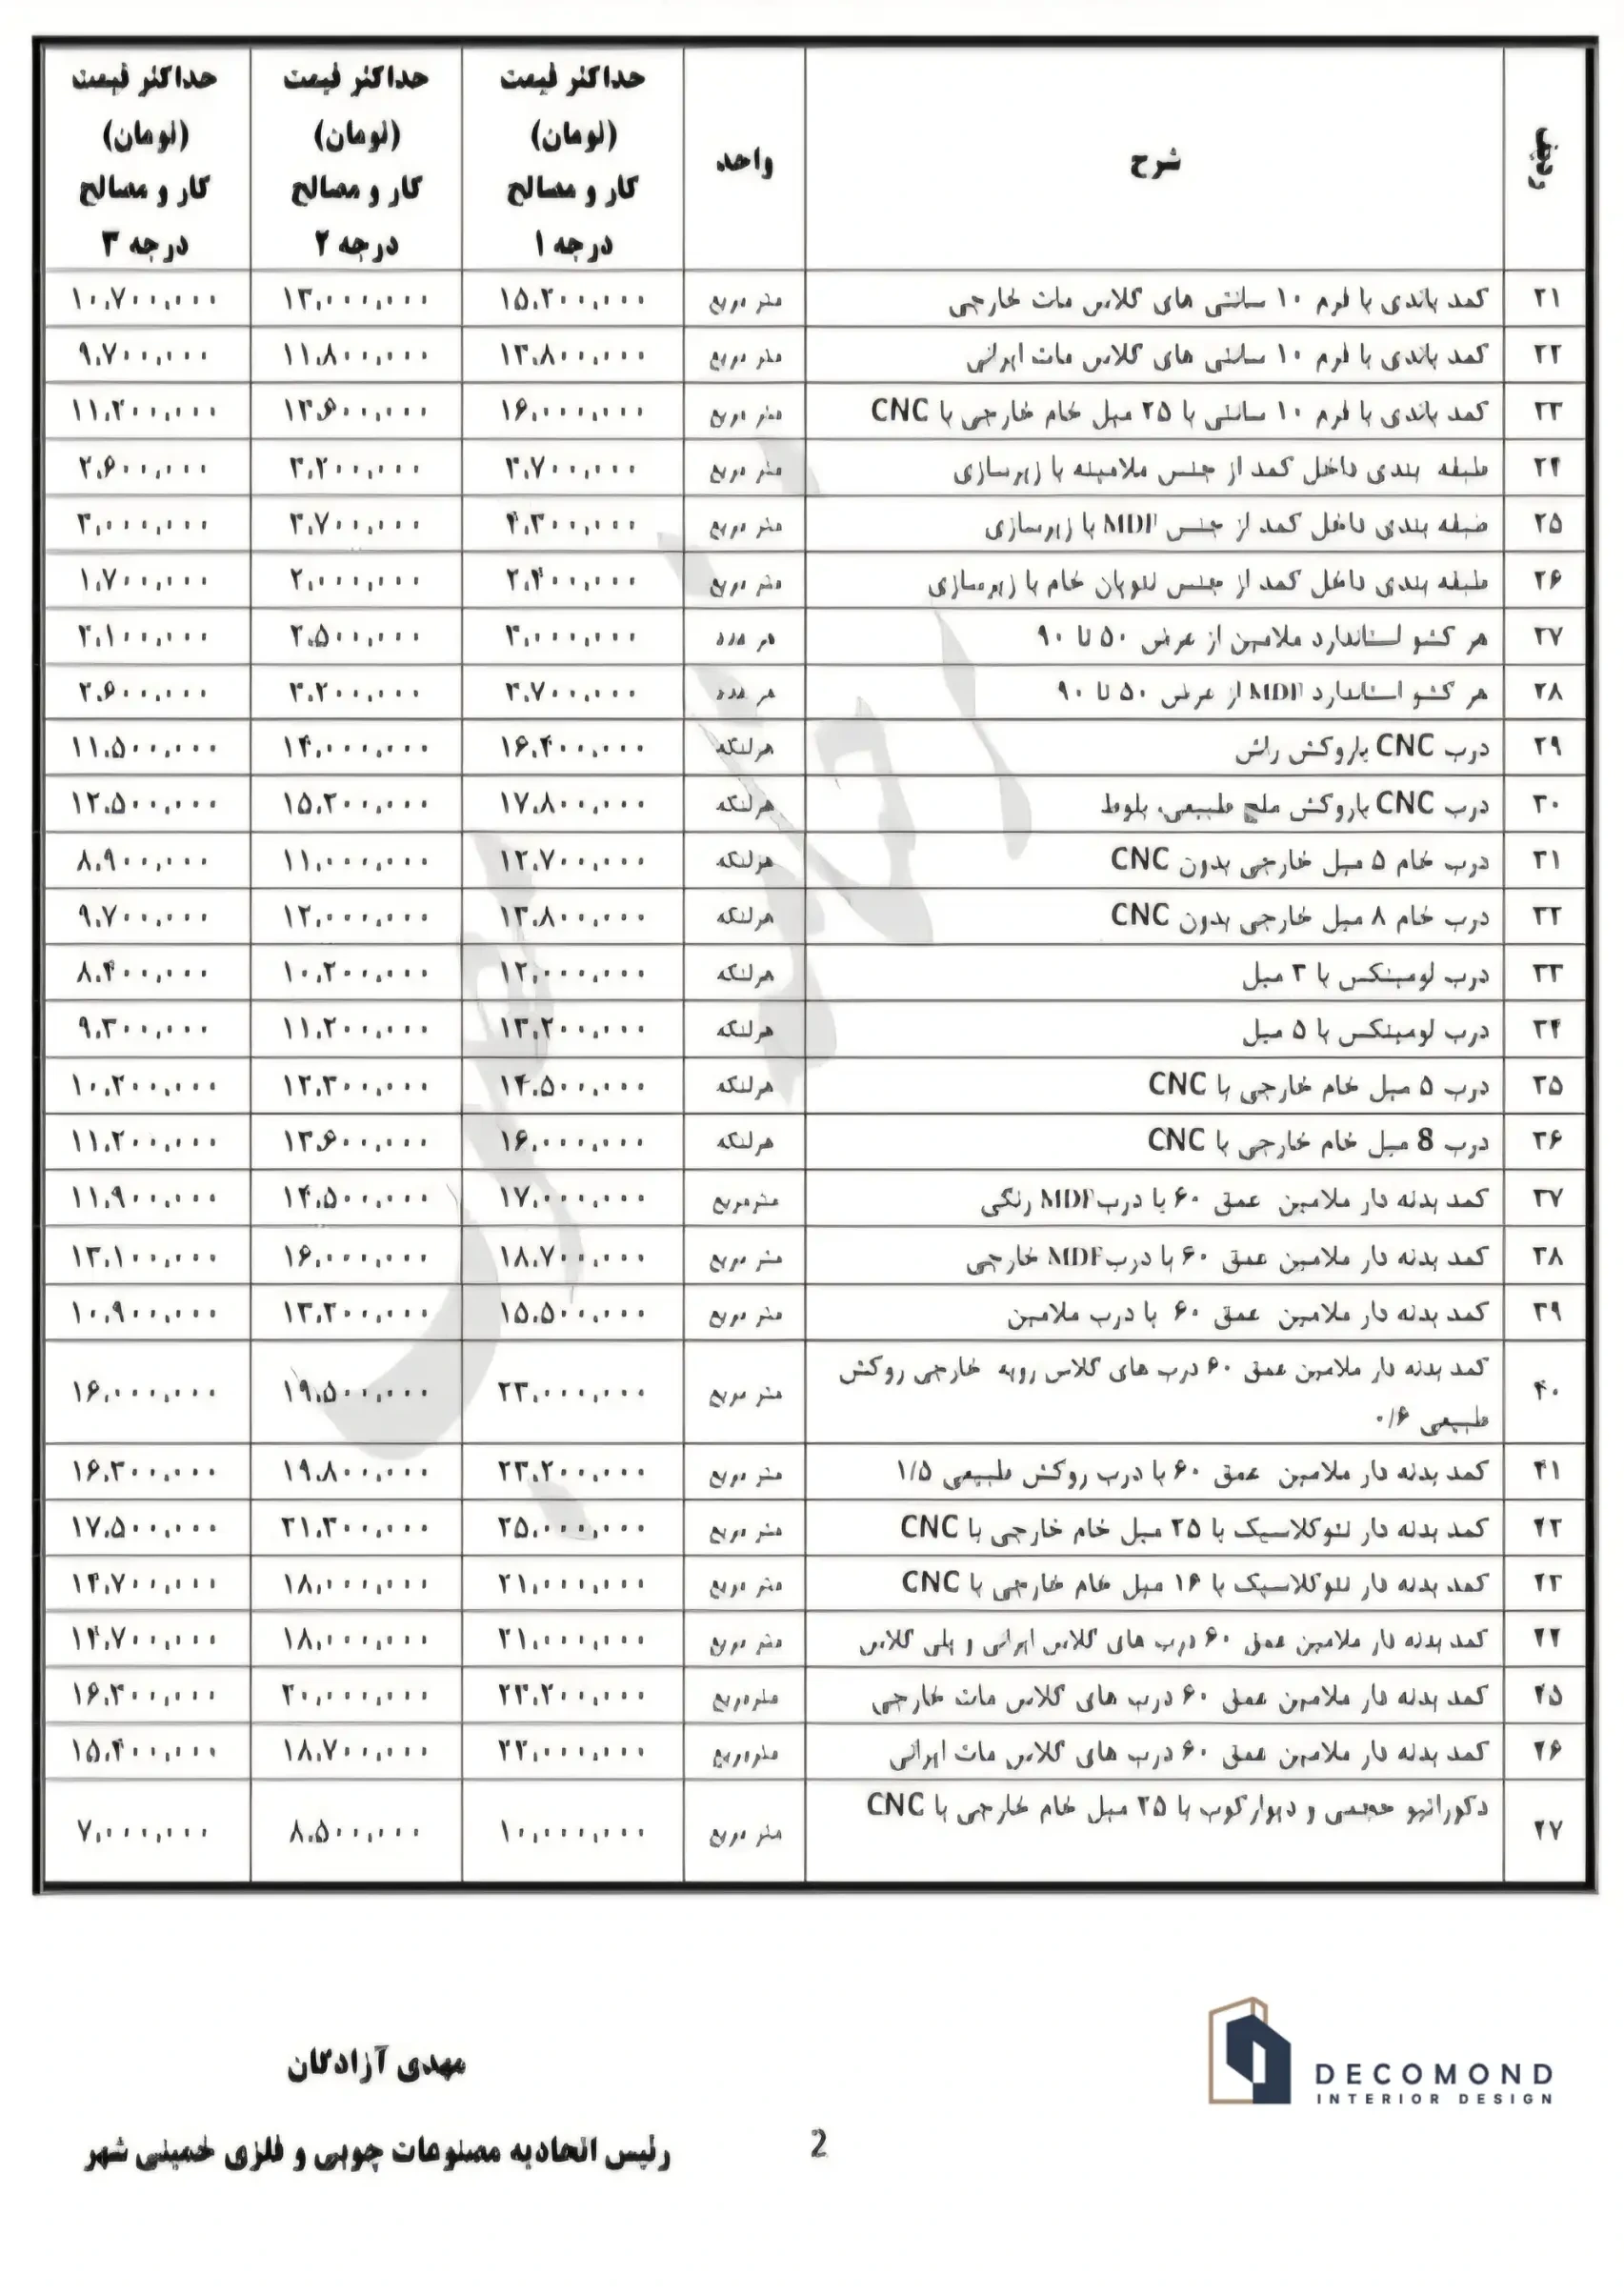 ردیف شرح واحد حداکثر قیمت (تومان) کار و مصالح درجه ۱ حداکثر قیمت (تومان) کار و مصالح درجه ۲ حداکثر قیمت (تومان) کار و مصالح درجه ۳
۲۱ کمد باندی با فرم ۱۰ سانتی های گلاس مات خارجی متر مربع ۱۵.۳۰۰.۰۰۰ ۱۳.۰۰۰.۰۰۰ ۱۰.۷۰۰.۰۰۰
۲۲ کمد باندی با فرم ۱۰ سانتی های گلاس مات ایرانی متر مربع ۱۳.۸۰۰.۰۰۰ ۱۱.۸۰۰.۰۰۰ ۹.۷۰۰.۰۰۰
۲۳ کمد باندی با فرم ۱۰ سانتی با ۲۵ میل خام خارجی با CNC متر مربع ۱۶.۰۰۰.۰۰۰ ۱۳.۶۰۰.۰۰۰ ۱۱.۲۰۰.۰۰۰
۲۴ طبقه بندی داخل کمد از جنس ملامینه با زیرسازی متر مربع ۳.۷۰۰.۰۰۰ ۳.۲۰۰.۰۰۰ ۲.۶۰۰.۰۰۰
۲۵ طبقه بندی داخل کمد از جنس MDF با زیرسازی متر مربع ۴.۳۰۰.۰۰۰ ۳.۷۰۰.۰۰۰ ۳.۰۰۰.۰۰۰
۲۶ طبقه بندی داخل کمد از جنس نئوپان خام با زیرسازی متر مربع ۲.۴۰۰.۰۰۰ ۲.۰۰۰.۰۰۰ ۱.۷۰۰.۰۰۰
۲۷ هر کشو استاندارد ملامین از عرض ۵۰ تا ۹۰ هر عدد ۳.۰۰۰.۰۰۰ ۲.۵۰۰.۰۰۰ ۲.۱۰۰.۰۰۰
۲۸ هر کشو استاندارد MDF از عرض ۵۰ تا ۹۰ هر عدد ۳.۷۰۰.۰۰۰ ۳.۲۰۰.۰۰۰ ۲.۶۰۰.۰۰۰
۲۹ درب CNC باروکش راش هرلنگه ۱۶.۴۰۰.۰۰۰ ۱۴.۰۰۰.۰۰۰ ۱۱.۵۰۰.۰۰۰
۳۰ درب CNC باروکش ملچ طبیعی، بلوط هرلنگه ۱۷.۸۰۰.۰۰۰ ۱۵.۲۰۰.۰۰۰ ۱۲.۵۰۰.۰۰۰
۳۱ درب خام ۵ میل خارجی بدون CNC هرلنگه ۱۲.۷۰۰.۰۰۰ ۱۱.۰۰۰.۰۰۰ ۸.۹۰۰.۰۰۰
۳۲ درب خام ۸ میل خارجی بدون CNC هرلنگه ۱۳.۸۰۰.۰۰۰ ۱۲.۰۰۰.۰۰۰ ۹.۷۰۰.۰۰۰
۳۳ درب لومینکس با ۳ میل هرلنگه ۱۲.۰۰۰.۰۰۰ ۱۰.۲۰۰.۰۰۰ ۸.۴۰۰.۰۰۰
۳۴ درب لومینکس با ۵ میل هرلنگه ۱۳.۲۰۰.۰۰۰ ۱۱.۲۰۰.۰۰۰ ۹.۳۰۰.۰۰۰
۳۵ درب ۵ میل خام خارجی با CNC هرلنگه ۱۴.۵۰۰.۰۰۰ ۱۲.۳۰۰.۰۰۰ ۱۰.۲۰۰.۰۰۰
۳۶ درب 8 میل خام خارجی با CNC هرلنگه ۱۶.۰۰۰.۰۰۰ ۱۳.۶۰۰.۰۰۰ ۱۱.۲۰۰.۰۰۰
۳۷ کمد بدنه دار ملامین عمق ۶۰ با درب MDF رنگی مترمربع ۱۷.۰۰۰.۰۰۰ ۱۴.۵۰۰.۰۰۰ ۱۱.۹۰۰.۰۰۰
۳۸ کمد بدنه دار ملامین عمق ۶۰ با درب MDF خارجی متر مربع ۱۸.۷۰۰.۰۰۰ ۱۶.۰۰۰.۰۰۰ ۱۳.۱۰۰.۰۰۰
۳۹ کمد بدنه دار ملامین عمق ۶۰ با درب ملامین متر مربع ۱۵.۵۰۰.۰۰۰ ۱۳.۲۰۰.۰۰۰ ۱۰.۹۰۰.۰۰۰
۴۰ کمد بدنه دار ملامین عمق ۶۰ درب های گلاس رویه خارجی روکش طبیعی ۰/۶ متر مربع ۲۳.۰۰۰.۰۰۰ ۱۹.۵۰۰.۰۰۰ ۱۶.۰۰۰.۰۰۰
۴۱ کمد بدنه دار ملامین عمق ۶۰ با درب روکش طبیعی ۱/۵ متر مربع ۲۳.۳۰۰.۰۰۰ ۱۹.۸۰۰.۰۰۰ ۱۶.۳۰۰.۰۰۰
۴۲ کمد بدنه دار نئوکلاسیک با ۲۵ میل خام خارجی با CNC متر مربع ۲۵.۰۰۰.۰۰۰ ۲۱.۳۰۰.۰۰۰ ۱۷.۵۰۰.۰۰۰
۴۳ کمد بدنه دار نئوکلاسیک با ۱۶ میل خام خارجی با CNC متر مربع ۲۱.۰۰۰.۰۰۰ ۱۸.۰۰۰.۰۰۰ ۱۴.۷۰۰.۰۰۰
۴۴ کمد بدنه دار ملامین عمق ۶۰ درب های گلاس ایرانی و پلی گلاس متر مربع ۲۱.۰۰۰.۰۰۰ ۱۸.۰۰۰.۰۰۰ ۱۴.۷۰۰.۰۰۰
۴۵ کمد بدنه دار ملامین عمق ۶۰ درب های گلاس مات خارجی مترمربع ۲۳.۳۰۰.۰۰۰ ۲۰.۰۰۰.۰۰۰ ۱۶.۳۰۰.۰۰۰
۴۶ کمد بدنه دار ملامین عمق ۶۰ درب های گلاس مات ایرانی مترمربع ۲۲.۰۰۰.۰۰۰ ۱۸.۷۰۰.۰۰۰ ۱۵.۴۰۰.۰۰۰
۴۷ دکوراتیو حجمی و دیوارکوب با ۲۵ میل خام خارجی با CNC متر مربع ۱۰.۰۰۰.۰۰۰ ۸.۵۰۰.۰۰۰ ۷.۰۰۰.۰۰۰
DECOMOND
INTERIOR DESIGN
مهدی آزادگان
رئیس اتحادیه مصنوعات چوبی و فلزی خمینی شهر
2